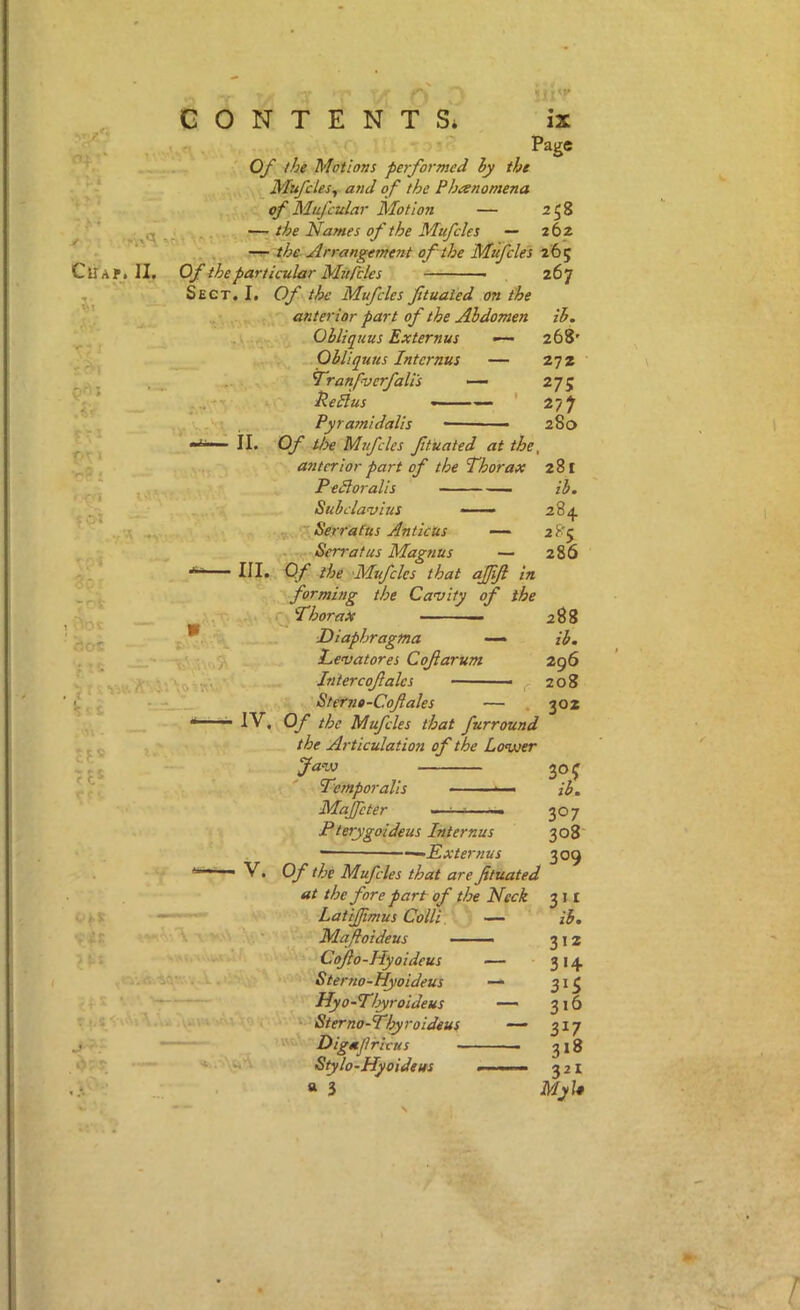 CONTENTS. ix
Page
Of the Motions performed by the
Muſcles, and of the Phœnomena
of Muſcular Motion — 258
— the Names of the Muſcles — 262
— the Arrangement of the Muſcles 265
CHAP. II. Of the particular Muſcles —— 267
SECT. I. Of the Muſcles ſituated on the
anterior part of the Abdomen ib.
Obliquus Externus — 268
Obliquus Internus — 272
Tranſverſalis — 275
Rectus —— 277
Pyramidalis —— 280
—— II. Of the Muſcles ſituated at the
anterior part of the Thorax 281
Pectoralis —— ib.
Subclavius —— 284
Serratus Anticus — 285
Serratus Magnus — 286
—— III. Of the Muſcles that aſſiſt in
forming the Cavity of the
Thorax —— 288
Diaphragma — ib.
Levatores Coſtarum 296
Intercoſtales —— 208
Sterno-Coſtales — 302
—— IV. Of the Muſcles that ſurround
the Articulation of the Lower
Jaw —— 305
Temporalis —— ib.
Maſſeter —— 307
Pterygoideus Internus 308
——Externus 309
—— V. Of the Muſcles that are ſituated
at the fore part of the Neck 311
Latiſſimus Colli — ib.
Maſtoideus —— 312
Coſto-Hyoideus — 314
Sterno-Hyoideus — 315
Hyo-Thyroideus — 316
Sterno-Thyroideus — 317
Digaſtricus —— 318
Stylo-Hyoideus —— 321
a 3 Mylo